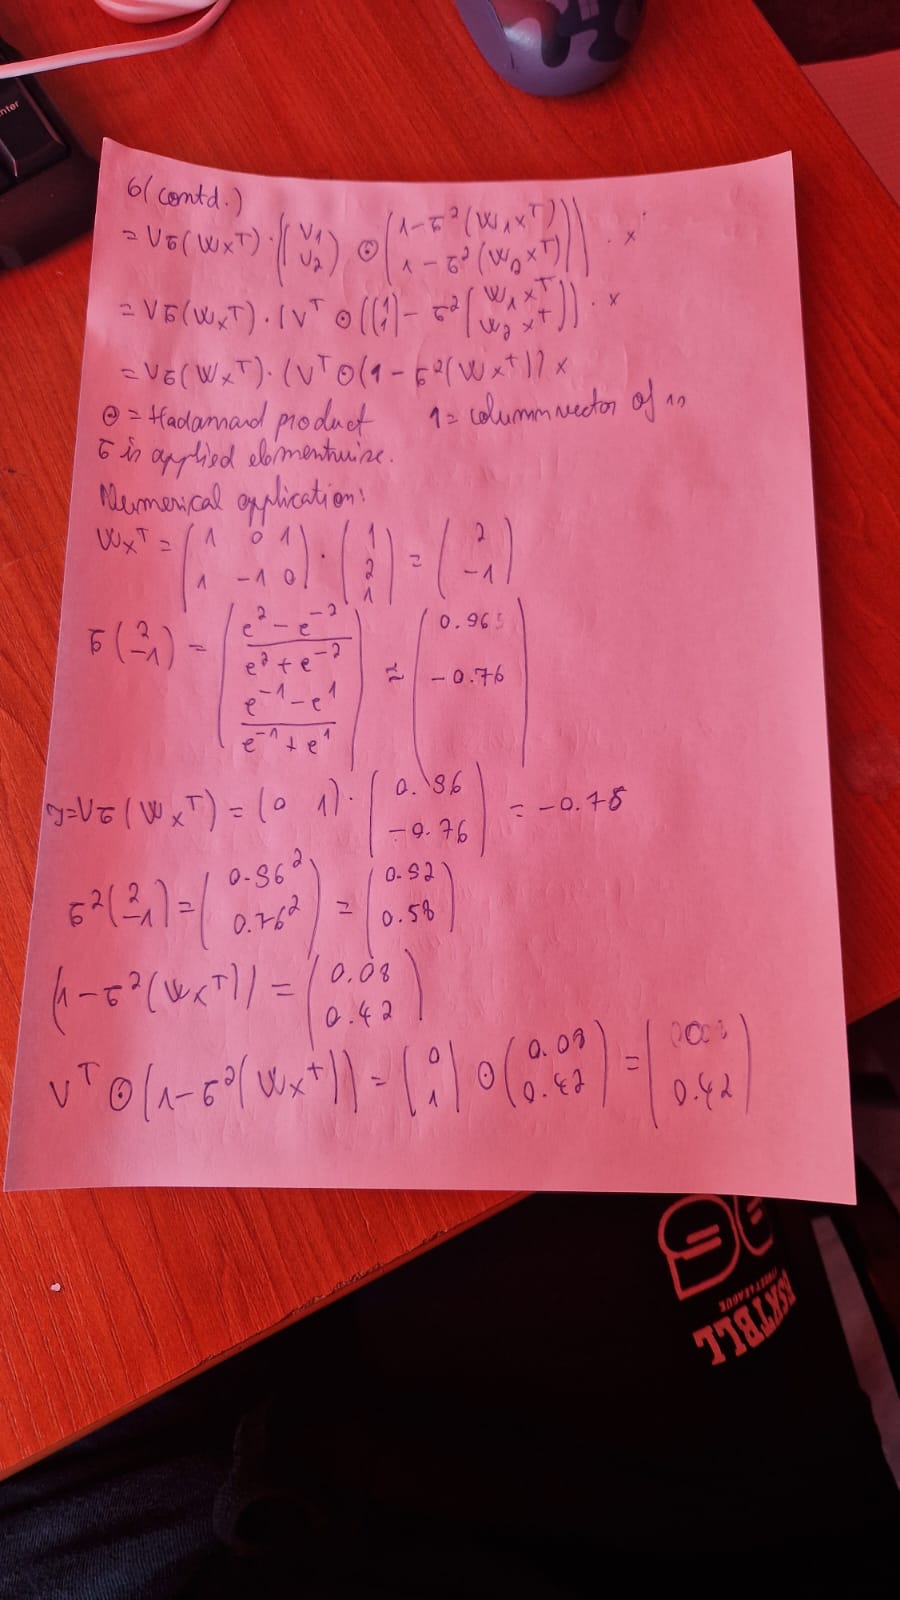 nter
6 (contd.)
= Vσ(WxT) · ((V1 V2) ⊙ (1-σ²(W1xT) 1-σ²(W2xT))) · x
= Vσ(WxT) · (VT ⊙ ((1 1) - σ²(W1xT W2xT))) · x
= Vσ(WxT) · (VT ⊙ (1 - σ²(WxT))) x
⊙ = Hadamard product 1 = column vector of 1s
σ is applied elementwise.
Numerical application:
WxT = (1 0 1 1 -1 0) · (1 2 1) = (2 -1)
σ(2 -1) = (e² - e⁻² / e² + e⁻² e⁻¹ - e¹ / e⁻¹ + e¹) ≈ (0.96 -0.76)
y = Vσ(WxT) = (0 1) · (0.96 -0.76) = -0.76
σ²(2 -1) = (0.96² 0.76²) = (0.92 0.58)
(1 - σ²(WxT)) = (0.08 0.42)
VT ⊙ (1 - σ²(WxT)) = (0 1) ⊙ (0.08 0.42) = ( 0.42)
BSKTBLL
STREET LEAGUE